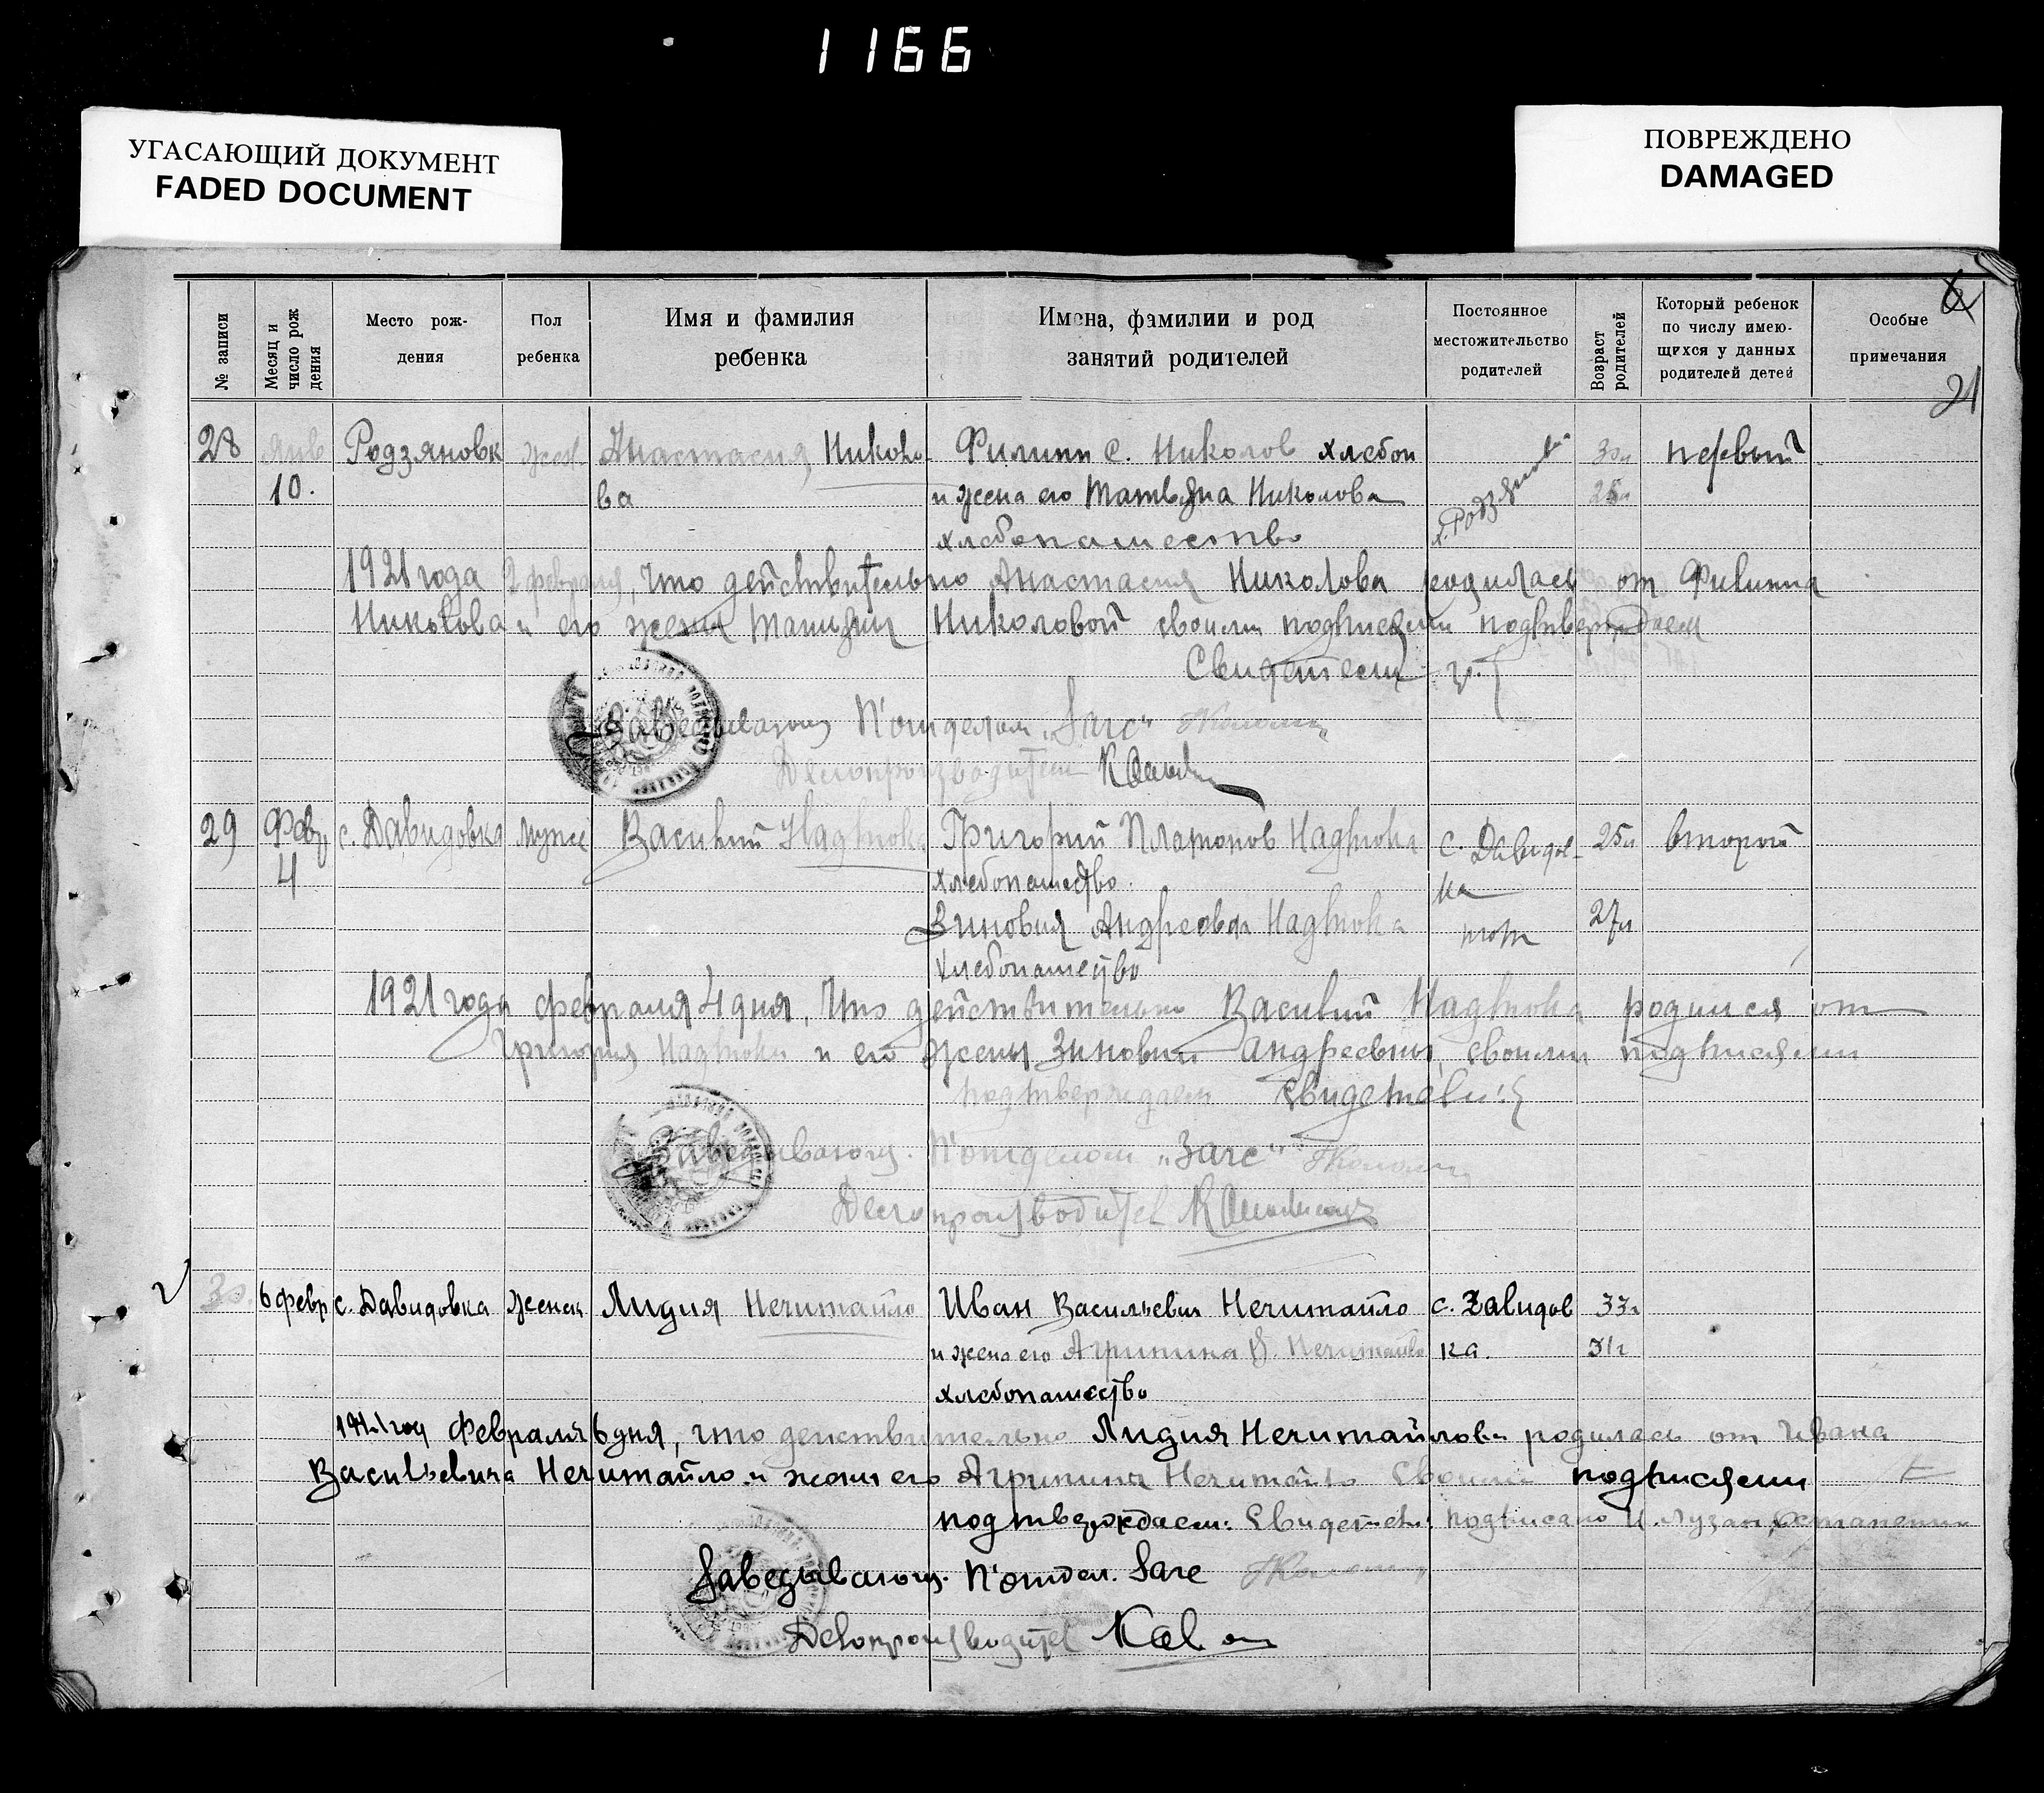 1166
УГАСАЮЩИЙ ДОКУМЕНТ
FADED DOCUMENT
ПОВРЕЖДЕНО
DAMAGED
№ записи
Месяц и число рождения
Место рож-
дения
Пол
ребенка
Имя и фамилия
ребенка
Имена, фамилии и род
занятий родителей
Постоянное
местожительство
родителей
Возраст родителей
Который ребенок
по числу имею-
щихся у данных
родителей детей
Особые
примечания
21
28 янв Родзяновк жен. Анастасия Николо- Филипп С. Николов хлебоп 30л первый
10. ва и жена его Татьяна Николова
хлебопашество
1921 года 2 февраля, что действительно Анастасия Николова родилась от Филиппа
Николова и его жены Татьяны Николовой своими подписями подтверждаем
Свидетели
Заведывающ П'отделом „Загс"
Делопроизводитель
29 Февр с. Давидовка мужс Василий Надтока Григорий Платонов Надтока с. Давидов- 25л второй
4 хлебопашество. ка
Зиновия Андреевна Надтока тоже 27л
хлебопашество
1921 года февраля 4 дня, что действительно Василий Надтока родился от
Григория Надтоки и его жены Зиновии Андреевны, своими подписями
подтверждаем свидетели:
Заведывающ. П'отделом „Загс"
Делопроизводител
30 6 февр с. Давидовка женск Лидия Нечитайло Иван Васильевич Нечитайло с. Давидов 33л
и жена его Агрипина В. Нечитайло ка. 31г
хлебопашество
1921 год февраля 6 дня, что действительно Лидия Нечитайлова родилась от Ивана
Васильевича Нечитайло и жены его Агрипины Нечитайло своими подписями
подтверждаем: Свидетели: подписано И. Лузан,
Заведывающ. П'отдел. Загс
Делопроизводител